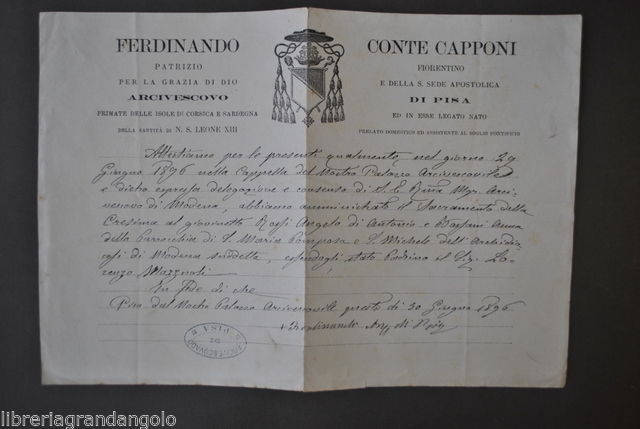 FERDINANDO CONTE CAPPONI
PATRIZIO FIORENTINO
PER LA GRAZIA DI DIO E DELLA S. SEDE APOSTOLICA
ARCIVESCOVO DI PISA
PRIMATE DELLE ISOLE DI CORSICA E SARDEGNA ED IN ESSE LEGATO NATO
DELLA SANTITÀ DI N. S. LEONE XIII PRELATO DOMESTICO ED ASSISTENTE AL SOGLIO PONTIFICIO
Attestiamo per le presenti qualmente, nel giorno 29
Giugno 1896 nella Cappella del Nostro Palazzo Arcivescovile
e dietro espressa delegazione e consenso di S. E. Rma Mgr. Arci-
vescovo di Modena, abbiamo amministrato il Sacramento della
Cresima al giovinetto Rossi Angelo di Antonio e Anna
della Parrocchia di S. Maria Pomposa e S. Michele dell'Archidio-
cesi di Modena suddetta, essendogli stato Padrino il Sig. Lo-
renzo
In fede di che
Pisa dal Nostro Palazzo Arcivescovile questo dì 30 Giugno 1896
+ Ferdinando Arciv. di Pisa
ARCIVESCOVADO DI PISA
libreriagrandangolo